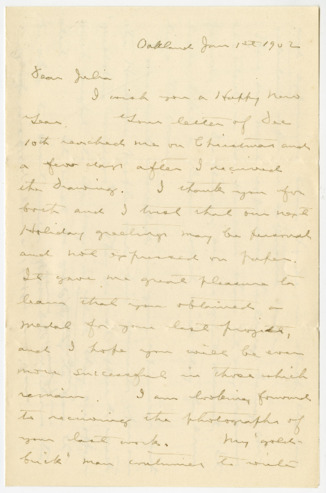 Oakland Jan 1st 1902
Dear Julia
I wish you a Happy New
Year. Your letter of Dec
10th reached me on Christmas and
a few days after I received
the drawing. I thank you for
both and I trust that our next
Holiday greetings may be personal
and not expressed on paper.
It gave me great pleasure to
learn that you obtained a
medal for your last projet,
and I hope you will be even
more successful in those which
remain. I am looking forward
to receiving the photographs of
your last work. My 'gold-
brick' man continues to write